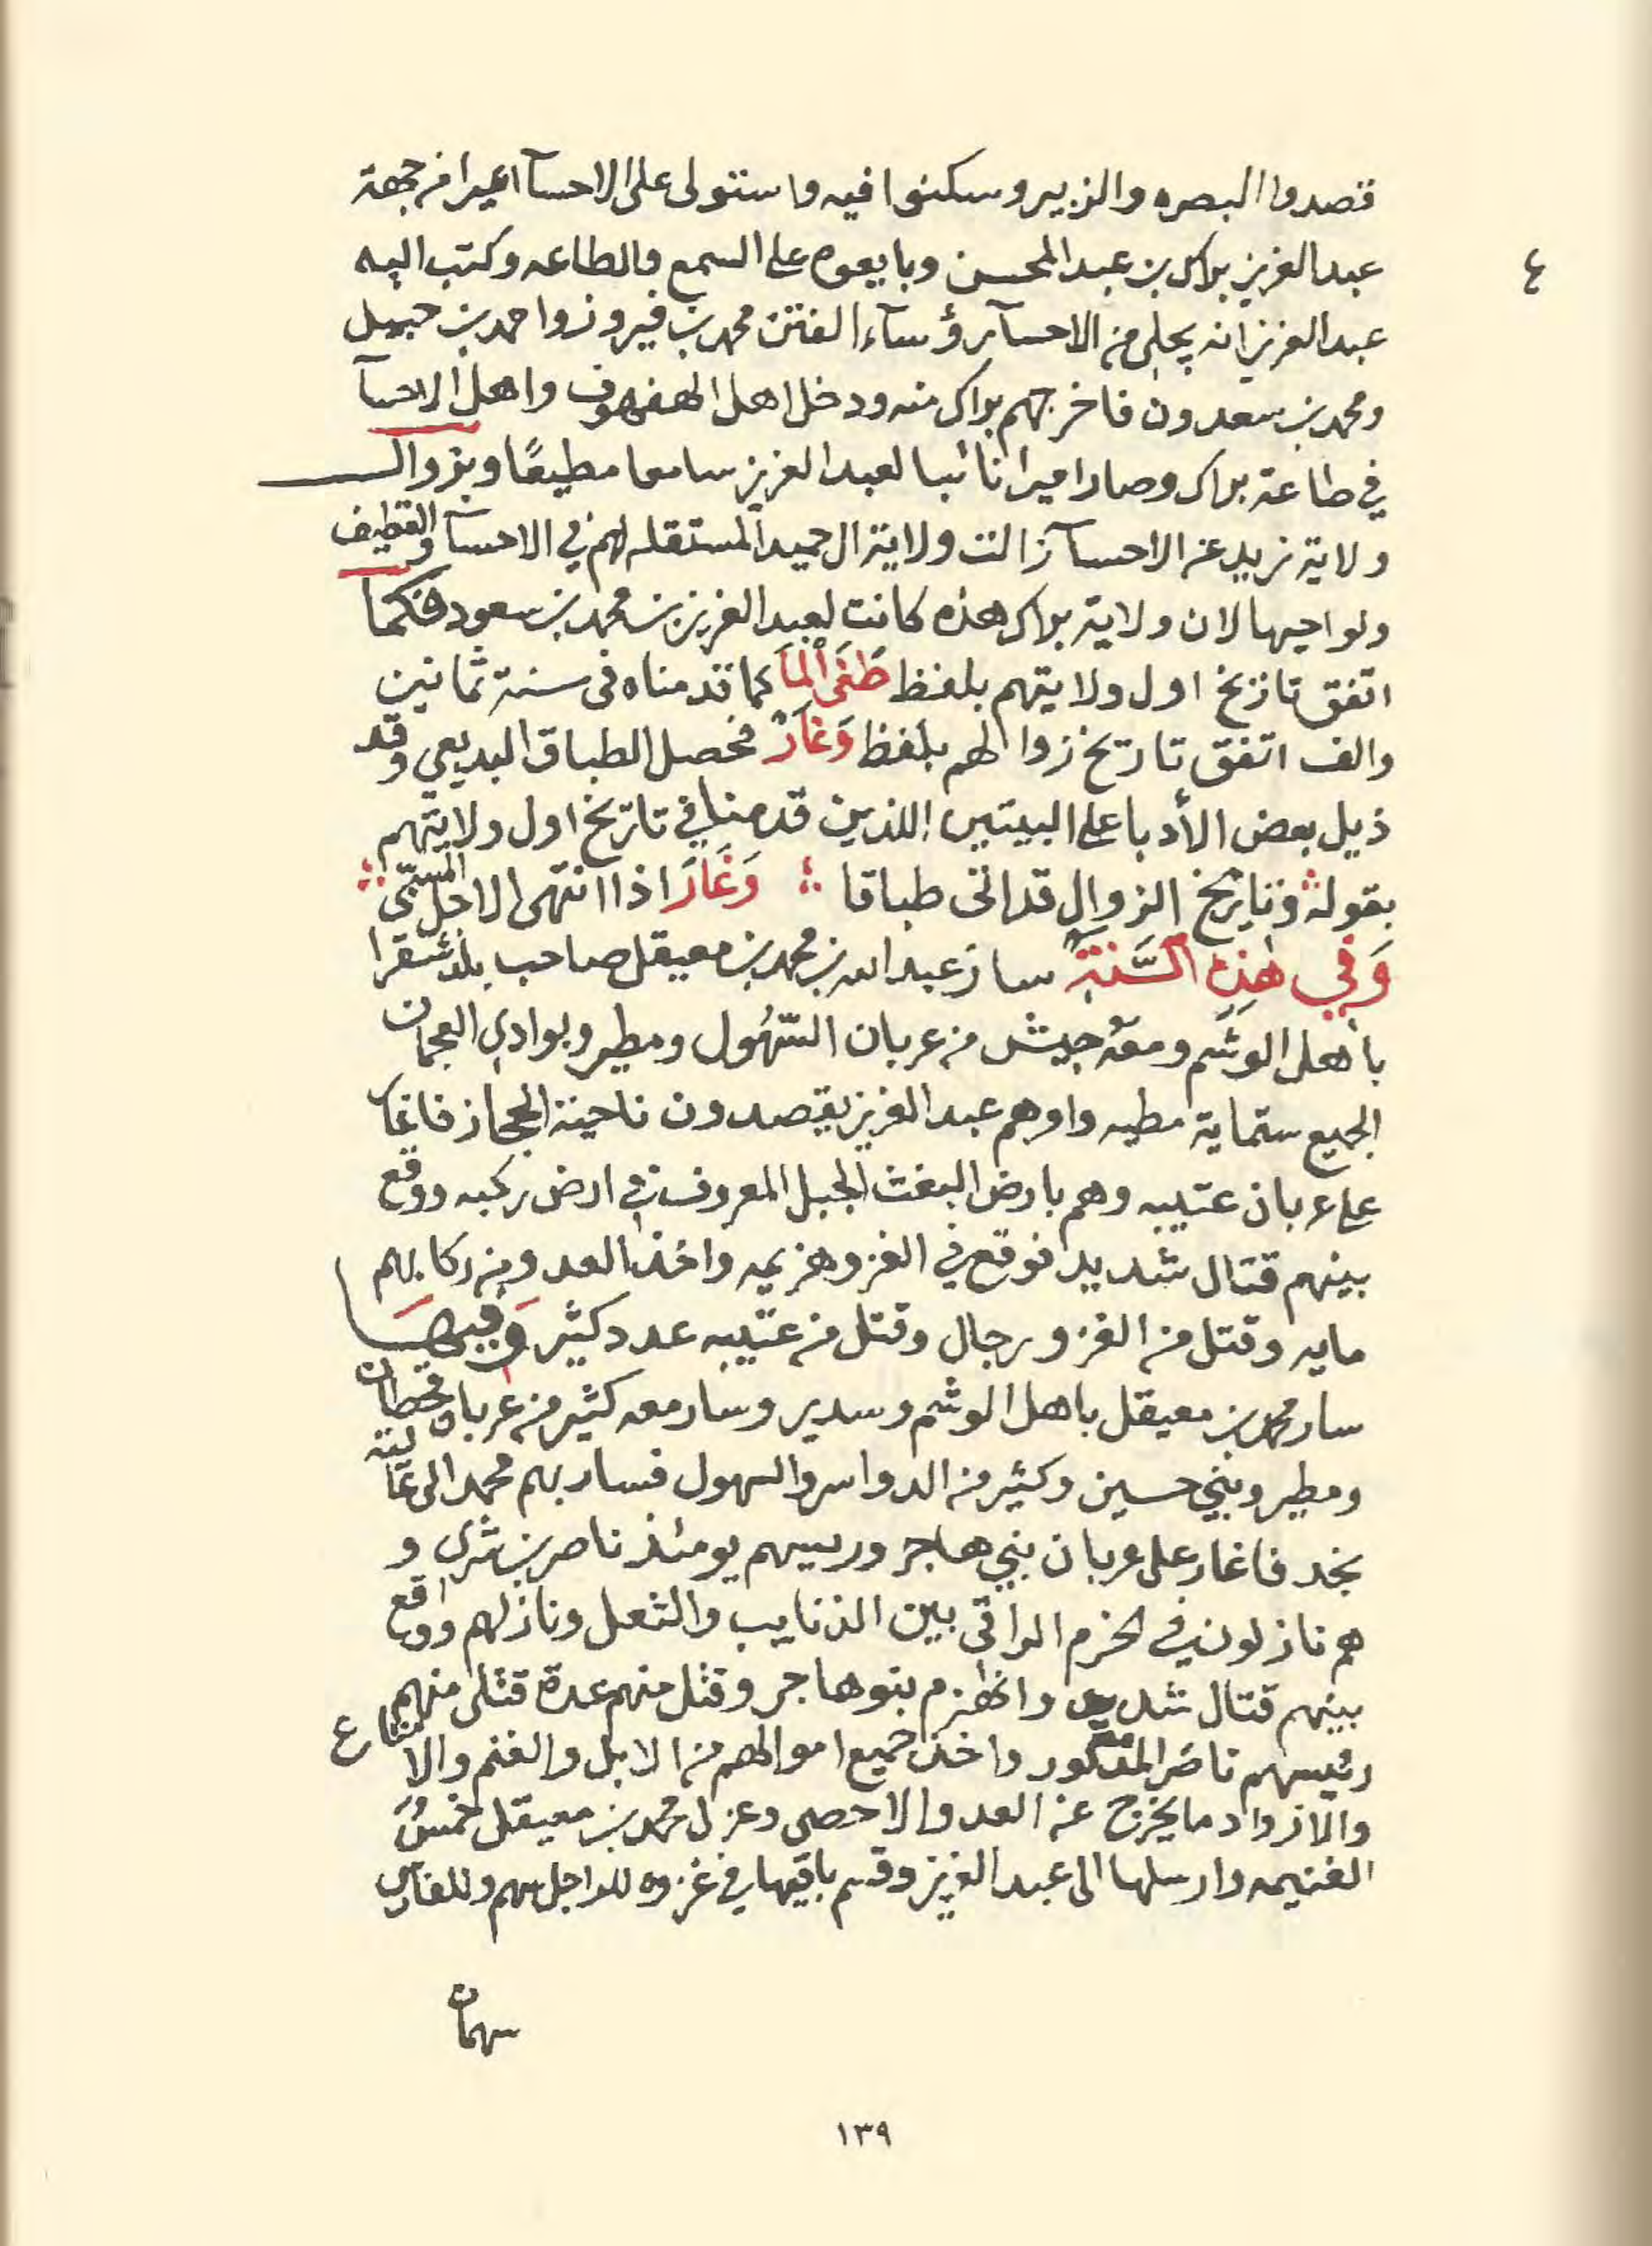 قصدوا البصره والزبير وسكنوا فيه واستولى على الاحسآ اميرا من جهة
عبدالعزيز براك بن عبدالمحسن وبايعوه على السمع والطاعه وكتب اليه
ع
عبدالعزيز انه يجلى من الاحسآ رؤسآء الفتن محمد بن فيروز واحمد بن حبيل
ومحمد بن سعدون فاخرجهم براك منه ودخل اهل الهفهوف واهل الاحسآ
في طاعة براك وصار اميرا نائبا لعبدالعزيز سامعا مطيعًا وبزوال
ولاية زيد عن الاحسآ زالت ولاية ال حميد المستقله لهم في الاحسآ والقطيف
ونواحيها لان ولاية براك هذه كانت لعبدالعزيز بن محمد بن سعود فكما
اتفق تاريخ اول ولايتهم بلفظ طَغَى ألمَا كما قدمناه في سنة ثمانين
والف اتفق تاريخ زوالهم بلفظ وَغَارَ فحصل الطباق البديعي وقد
ذيل بعض الأدبا على البيتين اللذين قدمنا في تاريخ اول ولايتهم
بقوله وتاريخ الزوال قد اتى طباقا وَغَارَ اذا انتهى الاجل المسمى
وَفي هَذِهِ السَّنَةِ سار عبدالله بن محمد بن معيقل صاحب بلد شقرا
باهل الوشم ومعه جيش من عربان السّهُول ومطير وبوادي العجمان
الجميع ستماية مطيه وامرهم عبدالعزيز يقصدون ناحية الحجاز فاغار
على عربان عتيبه وهم بارض البغث الجبل المعروف في ارض ركبه ووقع
بينهم قتال شديد فوقع في الغزو هزيمه واخذ العدو من ركابهم
مايه وقتل من الغزو رجال وقتل من عتيبه عدد كثير وَفيهَا
سار محمد بن معيقل باهل الوشم وسدير وسار معه كثير من عربان قحطان
ومطير وبني حسين وكثير من الدواسر والسهول فسار بهم محمد الى عالية
نجد فاغار على عربان بني هاجر ورييسهم يومئذ ناصر بن شري و
هم نازلون في الحزم الراقي بين الذنايب والثعل ونازلهم ووقع
بينهم قتال شديد وانهزم بنوهاجر وقتل منهم عدة قتلى منهم
رئيسهم ناصر المذكور واخذ جميع اموالهم من الابل والغنم والامتاع
ع
والازواد ما يخرج عن العد والاحصى وعزل محمد بن معيقل خمسُ
الغنيمه وارسلها الى عبدالعزيز وقسم باقيها في غزوه للراجل سهم وللفارس
سهمان
١٣٩